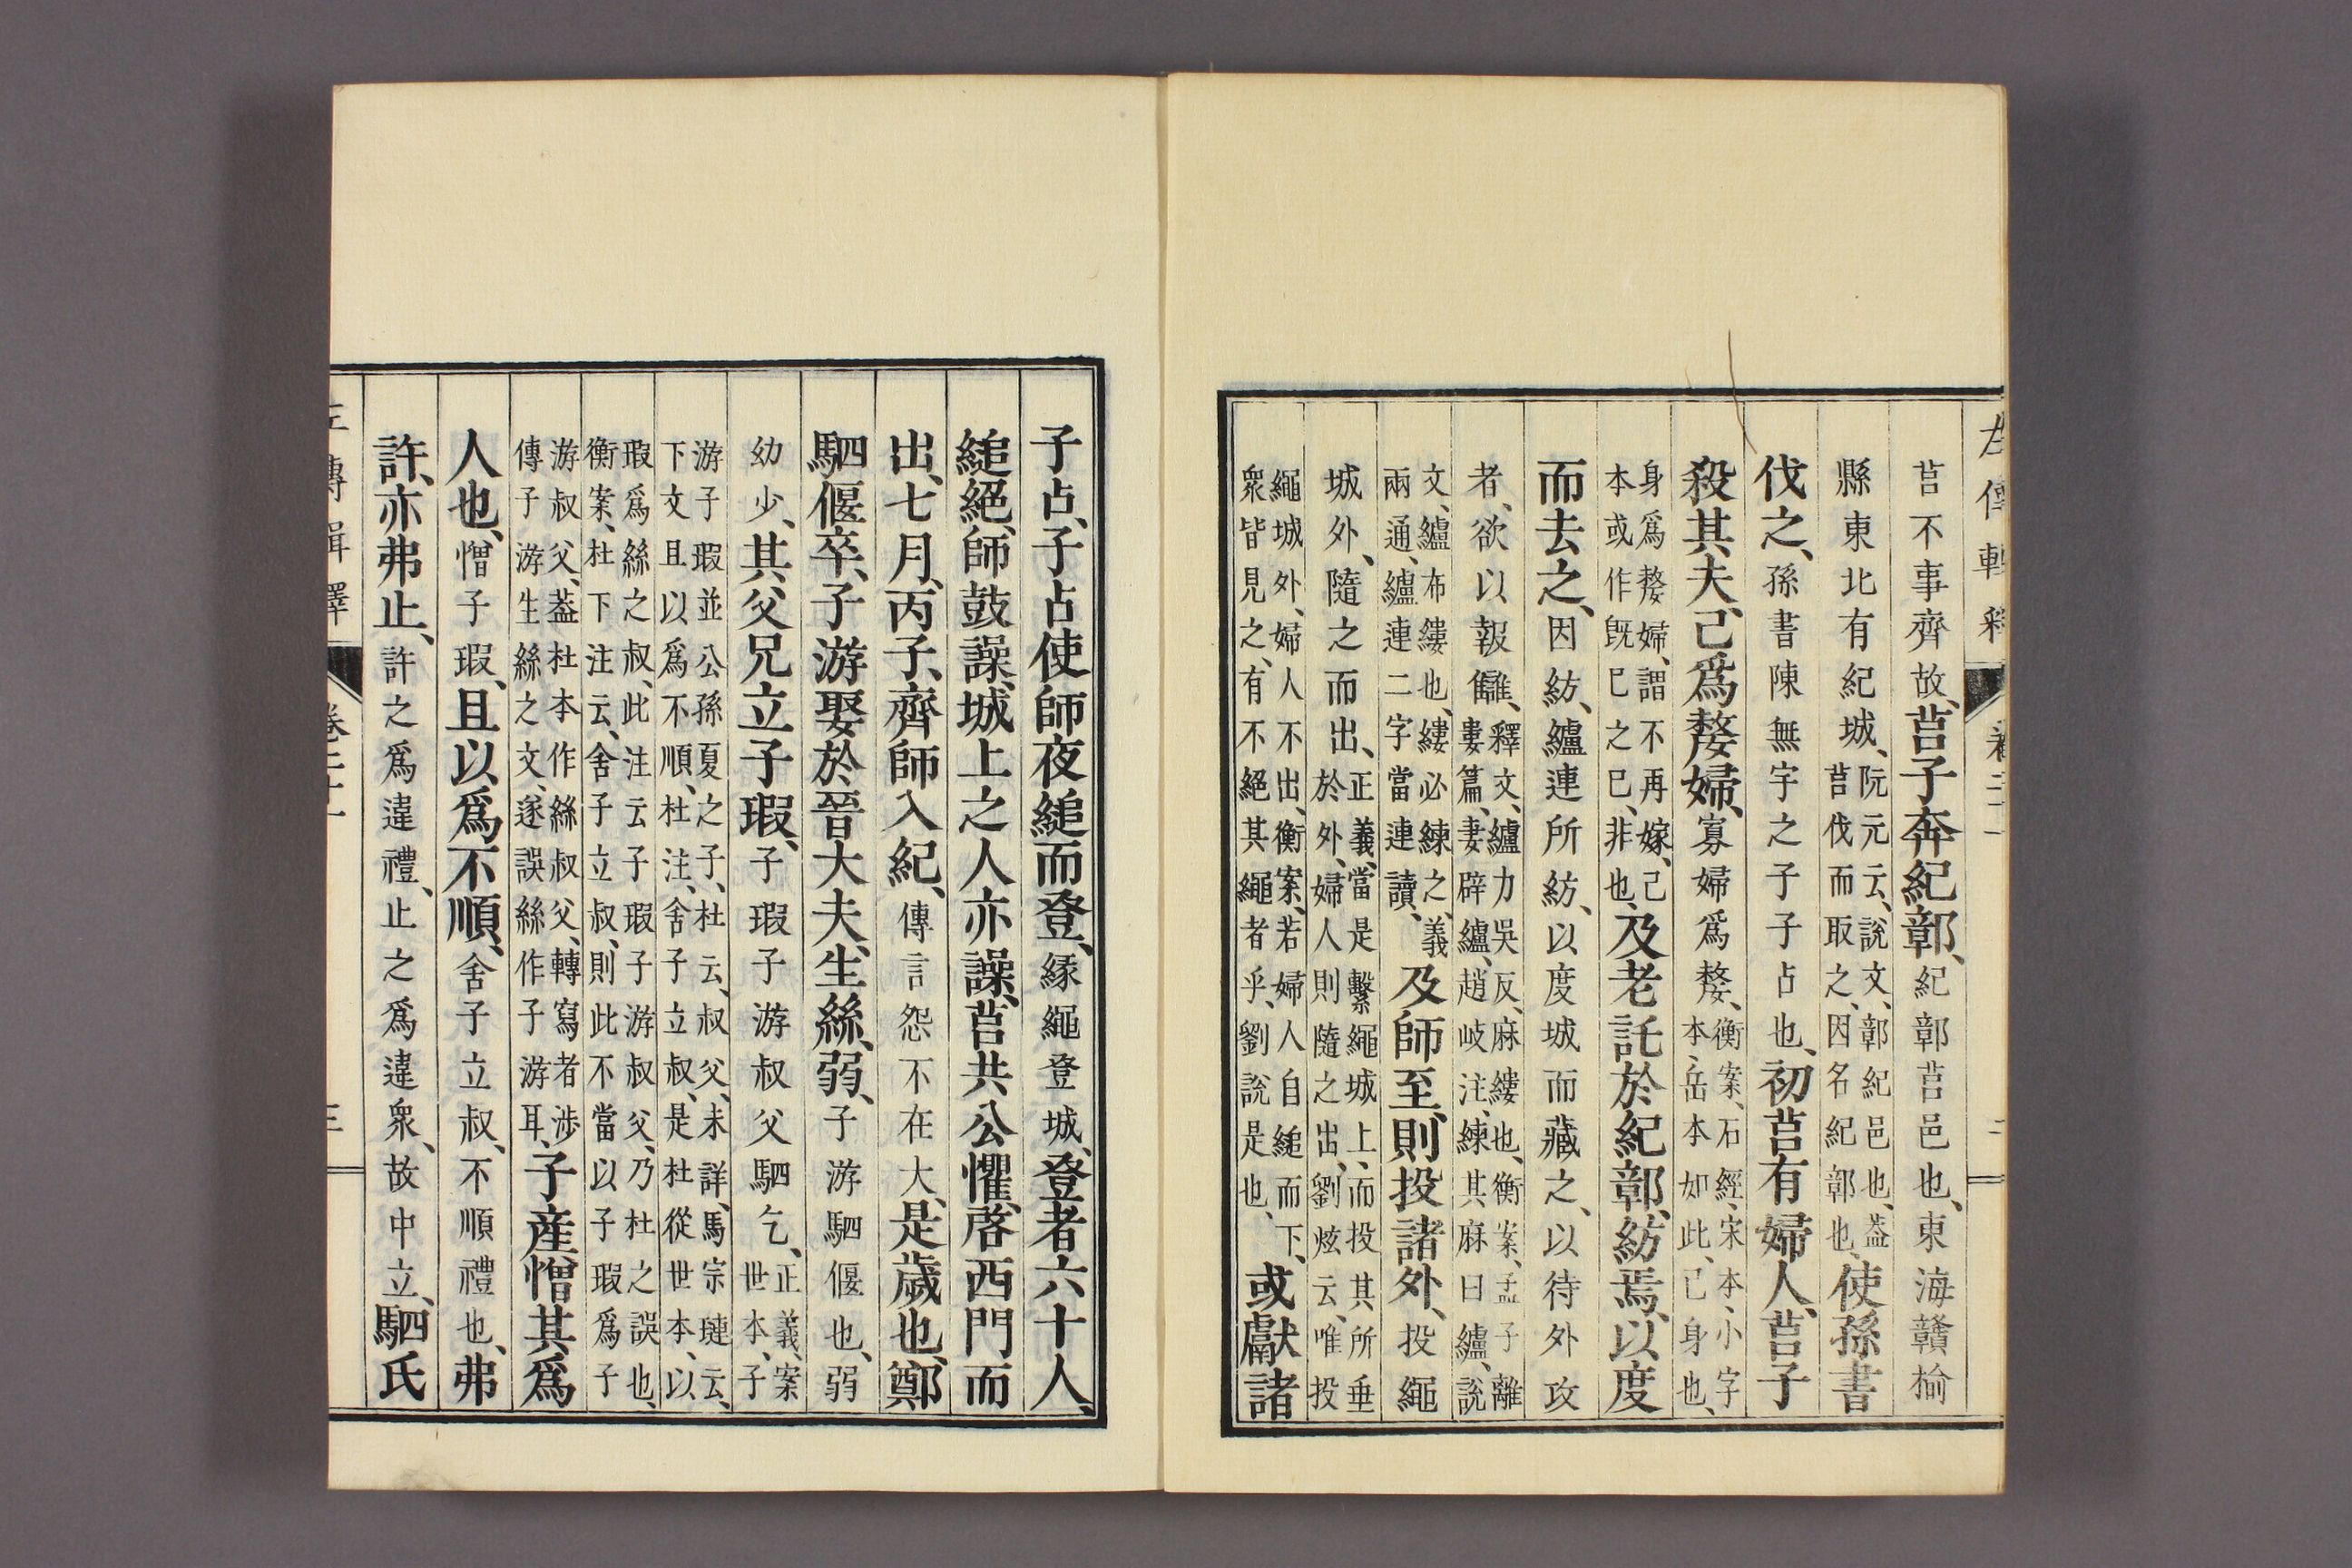 莒不事齊故、莒子奔紀鄣、紀鄣莒邑也、東海贛榆
縣東北有紀城、阮元云、說文、鄣紀邑也、葢莒伐而取之、因名紀鄣也、使孫書
伐之、孫書陳無宇之子子占也、初莒有婦人、莒子
殺其夫、己爲嫠婦、寡婦爲嫠、衡案、石經、宋本、小字本、岳本如此、己身也、
身爲嫠婦、謂不再嫁、己本或作旣巳之巳、非也、及老託於紀鄣、紡焉、以度
而去之、因紡纑連所紡、以度城而藏之、以待外攻
者、欲以報讎、釋文、纑力吳反、麻縷也、衡案、孟子離婁篇、妻辟纑、趙岐注、練其麻曰纑、說
文、纑布縷也、縷必練之、義兩通、纑連二字當連讀、及師至、則投諸外、投繩
城外、隨之而出、正義、當是繫繩城上、而投其所垂於外、婦人則隨之出、劉炫云、唯投
繩城外、婦人不出、衡案、若婦人自縋而下、衆皆見之、有不絕其繩者乎、劉說是也、或獻諸
子占、子占使師夜縋而登、緣繩登城、登者六十人、
縋絕、師鼓譟、城上之人亦譟、莒共公懼、啓西門而
出、七月、丙子、齊師入紀、傳言怨不在大、是歲也、鄭
駟偃卒、子游娶於晉大夫、生絲、弱、子游駟偃也、弱
幼少、其父兄立子瑕、子瑕子游叔父駟乞、正義、案世本、子
游子瑕並公孫夏之子、杜云、叔父、未詳、馬宗璉云、下文且以爲不順、杜注、舍子立叔、是杜從世本、以
瑕爲絲之叔、此注云子瑕子游叔父、乃杜之誤也、衡案、杜下注云、舍子立叔、則此不當以子瑕爲子
游叔父、葢杜本作絲叔父、轉寫者涉傳子游生絲之文、遂誤絲作子游耳、子產憎其爲
人也、憎子瑕、且以爲不順、舍子立叔、不順禮也、弗
許、亦弗止、許之爲違禮、止之爲違衆、故中立、駟氏